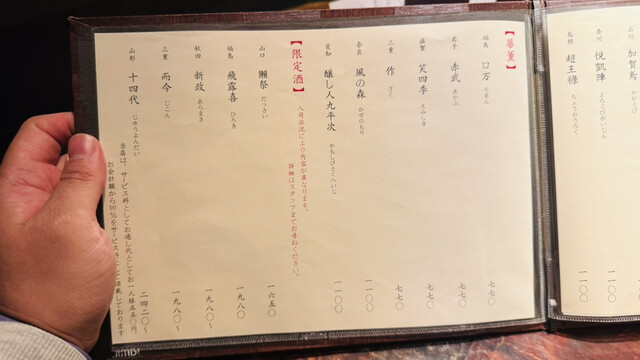 石川 加賀鳶 かがとび
香川 悦凱陣 よろこびがいじん 一一〇〇
島根 超王祿 ちょうおうろく 一一〇〇
【華薫】
福島 口万 ろまん 七七〇
岩手 赤武 あかぶ 七七〇
滋賀 笑四季 えみしき 七七〇
三重 作 ざく 七七〇
奈良 風の森 かぜのもり 一一〇〇
愛知 醸し人九平次 かもしびとくへいじ 一一〇〇
【限定酒】
入荷状況により内容が異なります。
詳細はスタッフまでお尋ねください。
山口 獺祭 だっさい 一六五〇
福島 飛露喜 ひろき 一九八〇
秋田 新政 あらまさ 一九八〇~
三重 而今 じこん 一九八〇~
山形 十四代 じゅうよんだい 二四二〇~
当店は、サービス料としてお通し代としてお一人様五五〇円
お会計額から10%をサービス料として頂戴しております